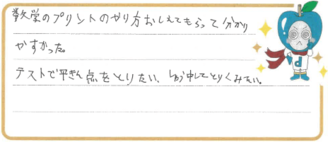 数学のプリントのやり方おしえてもらって分かり
やすかった
テストで平きん点をとりたい、しゅう中してとりくみたい。
d